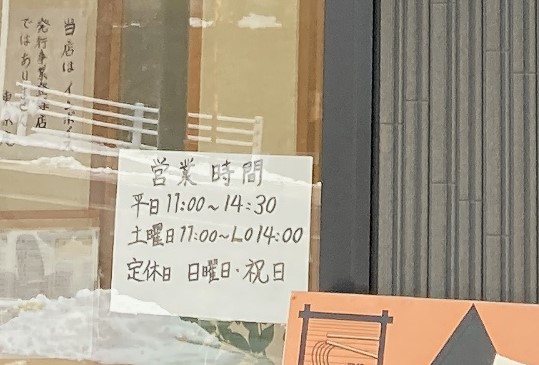 当店はインボイス
発行事業者の店
ではありません
営業時間
平日 11:00～14:30
土曜日 11:00～LO14:00
定休日 日曜日・祝日